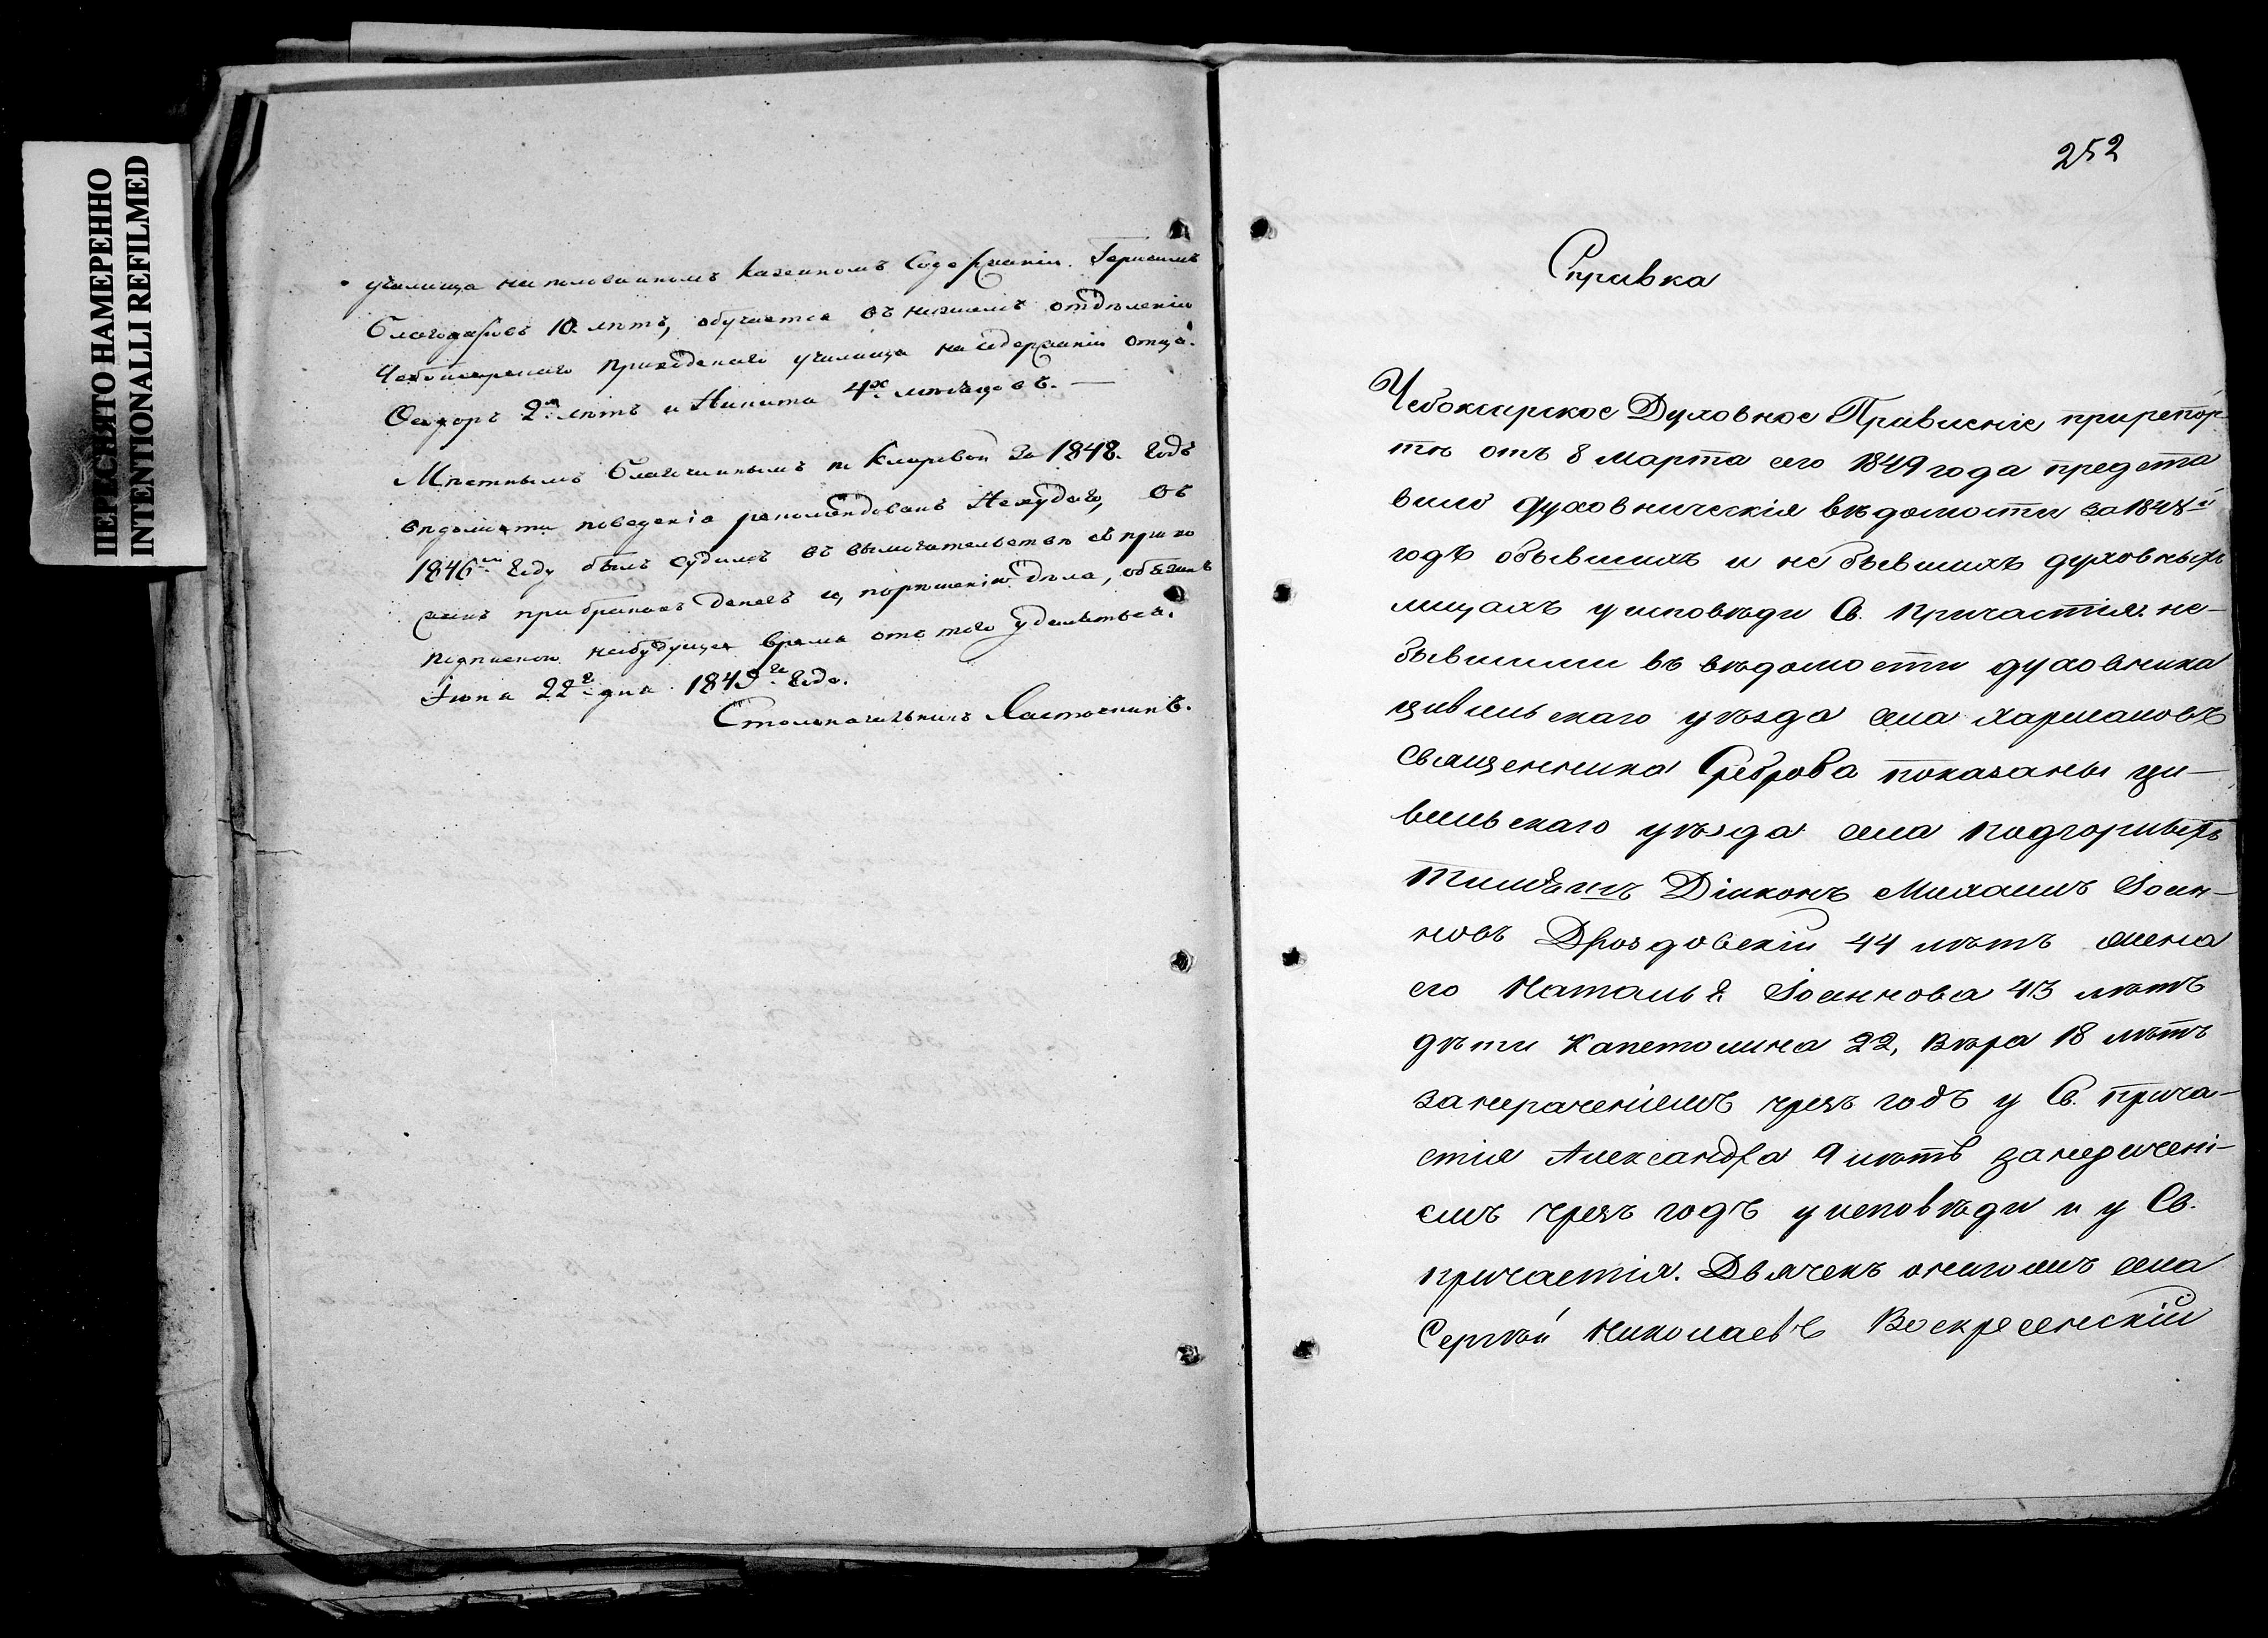 ПЕРЕСНЯТО НАМЕРЕННО
INTENTIONALLI REFILMED
училища на половинномъ казенномъ содержаніи. Герасимъ
Благодаровъ 10. лѣтъ, обучается въ низшемъ отдѣленіи
Чебоксарскаго приходскаго училища на содержаніи отца.
Ѳеодоръ 2хъ лѣтъ и Никита 4х мѣсяцовъ. —
Мѣстнымъ Благочиннымъ въ Клировой за 1848. годъ
вѣдомости поведенія рекомендованъ Нехудаго, въ
1846мъ году былъ судимъ въ вымогательствѣ съ прихо
жанъ при бракахъ денегъ и, по рѣшенію дѣла, обязанъ
подпискою на будущее время отъ того удаляться.
Іюня 22го дня 1849го года.
Столоначальникъ Ласточкинъ.
252
Справка
Чебоксарское Духовное Правленіе при репор-
тѣ отъ 8 марта сего 1849 года предста
вило духовническія вѣдомости за 1848й
годъ о бывшихъ и не бывшихъ духовныхъ
лицахъ у исповѣди Св. Причастія. не-
бывшими въ вѣдомости духовника
цивильскаго уѣзда села
священника Сереброва показаны ци-
вильскаго уѣзда села подгорныхъ
Діаконъ Михаилъ Іоан-
новъ Дроздовскій 44 лѣтъ жена
его Наталья Іоаннова 43 лѣтъ
дѣти Капетолина 22, Вѣра 18 лѣтъ
за нераченіемъ чрезъ годъ у Св. прича-
стія Александра 9 лѣтъ за нерачені-
емъ чрезъ годъ у исповѣди и у Св.
причастія. Дьячекъ онагожъ села
Сергѣй Николаевъ Воскресенскій